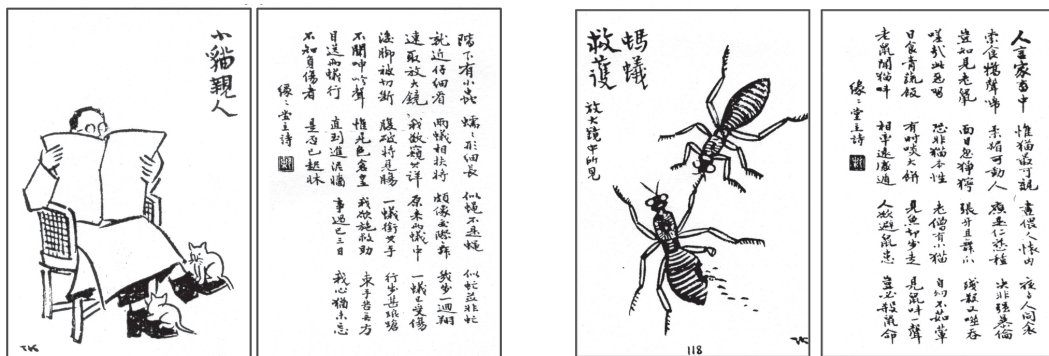 小貓親人
TK
階下有小蟲 蠕〻形細長 似蠅不是蠅 似虻並非虻
就近仔細看 兩蟻相扶將 頗像交際舞 我步一迴翔
速取放大鏡 我欲窺其詳 原來兩蟻中 一蟻已受傷
後脚被切斷 腹破將見腸 一蟻銜其手 行步甚踉蹌
不聞呻吟聲 惟見色倉皇 我欲施救助 束手苦無方
目送兩蟻行 直到進泥牆 事過已三日 我心猶未忘
不知負傷者 是否已起牀
緣〻堂主詩
螞蟻
救護
放大鏡中所見
TK
118
人言家畜中 惟貓最可親 晝偎人懷內 夜與人同衾
索食嬌聲啼 柔媚可動人 應是仁慈種 決非強暴倫
豈如見老鼠 面目忽猙獰 張牙且舞爪 殘殺又噬吞
嗟哉此惡名 恐非貓本性 老僧有小貓 自幼不茹葷
日食青蔬飯 有時啖大餅 見魚卻步走 見鼠叫一聲
老鼠聞貓叫 相率遠處遁 人欲避鼠患 豈必殺鼠命
緣〻堂主詩